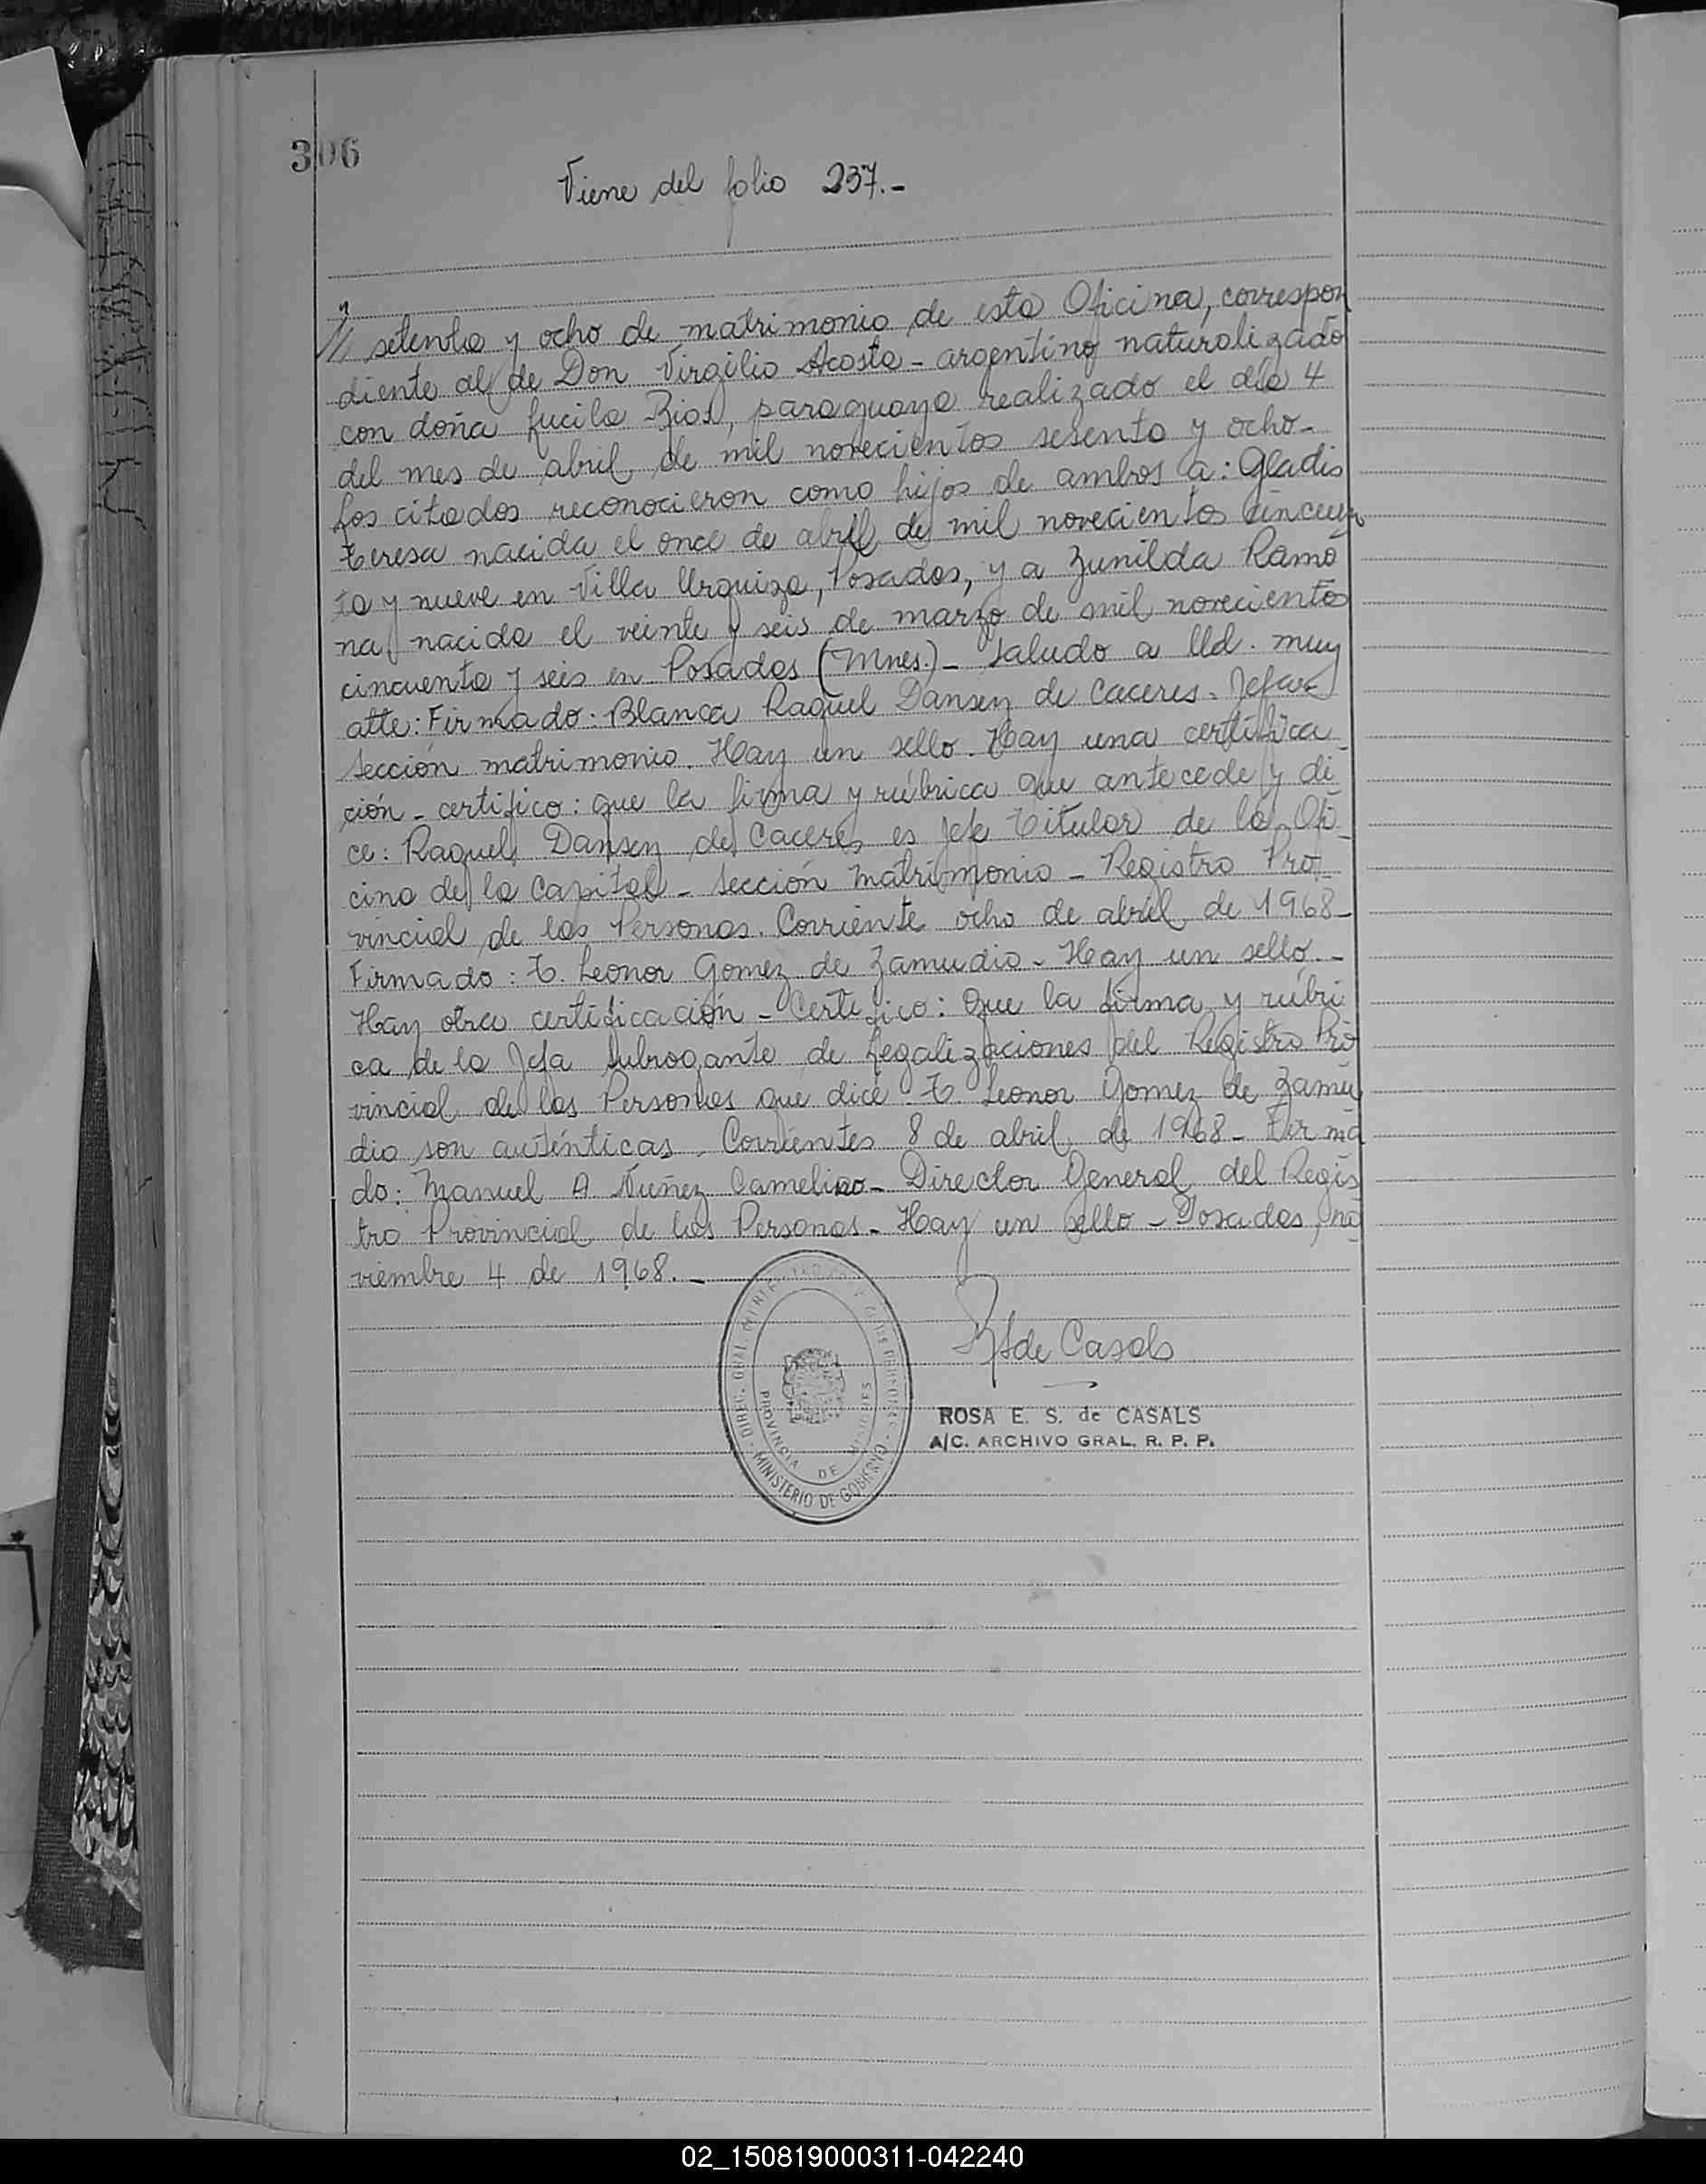 306
Viene del folio 237.-
/// setenta y ocho de matrimonio de esta Oficina, correspon
diente al de Don Virgilio Acosta - argentino naturalizado
con doña Lucila Rios, paraguaya realizado el día 4
del mes de abril de mil novecientos sesenta y ocho.-
Los citados reconocieron como hijos de ambos a: Gladis
Teresa nacida el once de abril de mil novecientos cincuen
ta y nueve en Villa Urquiza, Posadas, y a Zunilda Ramo
na, nacida el veinte y seis de marzo de mil novecientos
cincuenta y seis en Posadas (Mnes.)- Saludo a Ud. muy
atte: Firmado: Blanca Raquel Dansey de Caceres - Jefa
Sección matrimonio. Hay un sello. Hay una certifica
ción - certifico: que la firma y rúbrica que antecede y di
ce: Raquel Dansey de Caceres es Jefe Titular de la Ofi
cina de la Capital - Sección Matrimonio - Registro Pro
vincial de las Personas. Corriente ocho de abril de 1968-
Firmado: T. Leonor Gomez de Zamudio - Hay un sello.-
Hay otra certificación - Certifico: Que la firma y rúbri
ca de la Jefa Subrogante de Legalizaciones del Registro Pro
vincial de las Personas que dice: T. Leonor Gomez de Zamu
dio son auténticas. Corrientes 8 de abril de 1968 - Firma
do: Manuel A Nuñez Camelino - Director General del Regis
tro Provincial de las Personas - Hay un sello - Posadas, no
viembre 4 de 1968.-
de Casals
PROVINCIA DE MISIONES
MINISTERIO DE GOBIERNO
ROSA E. S. de CASALS
A/C. ARCHIVO GRAL. R. P. P.
02_150819000311-042240